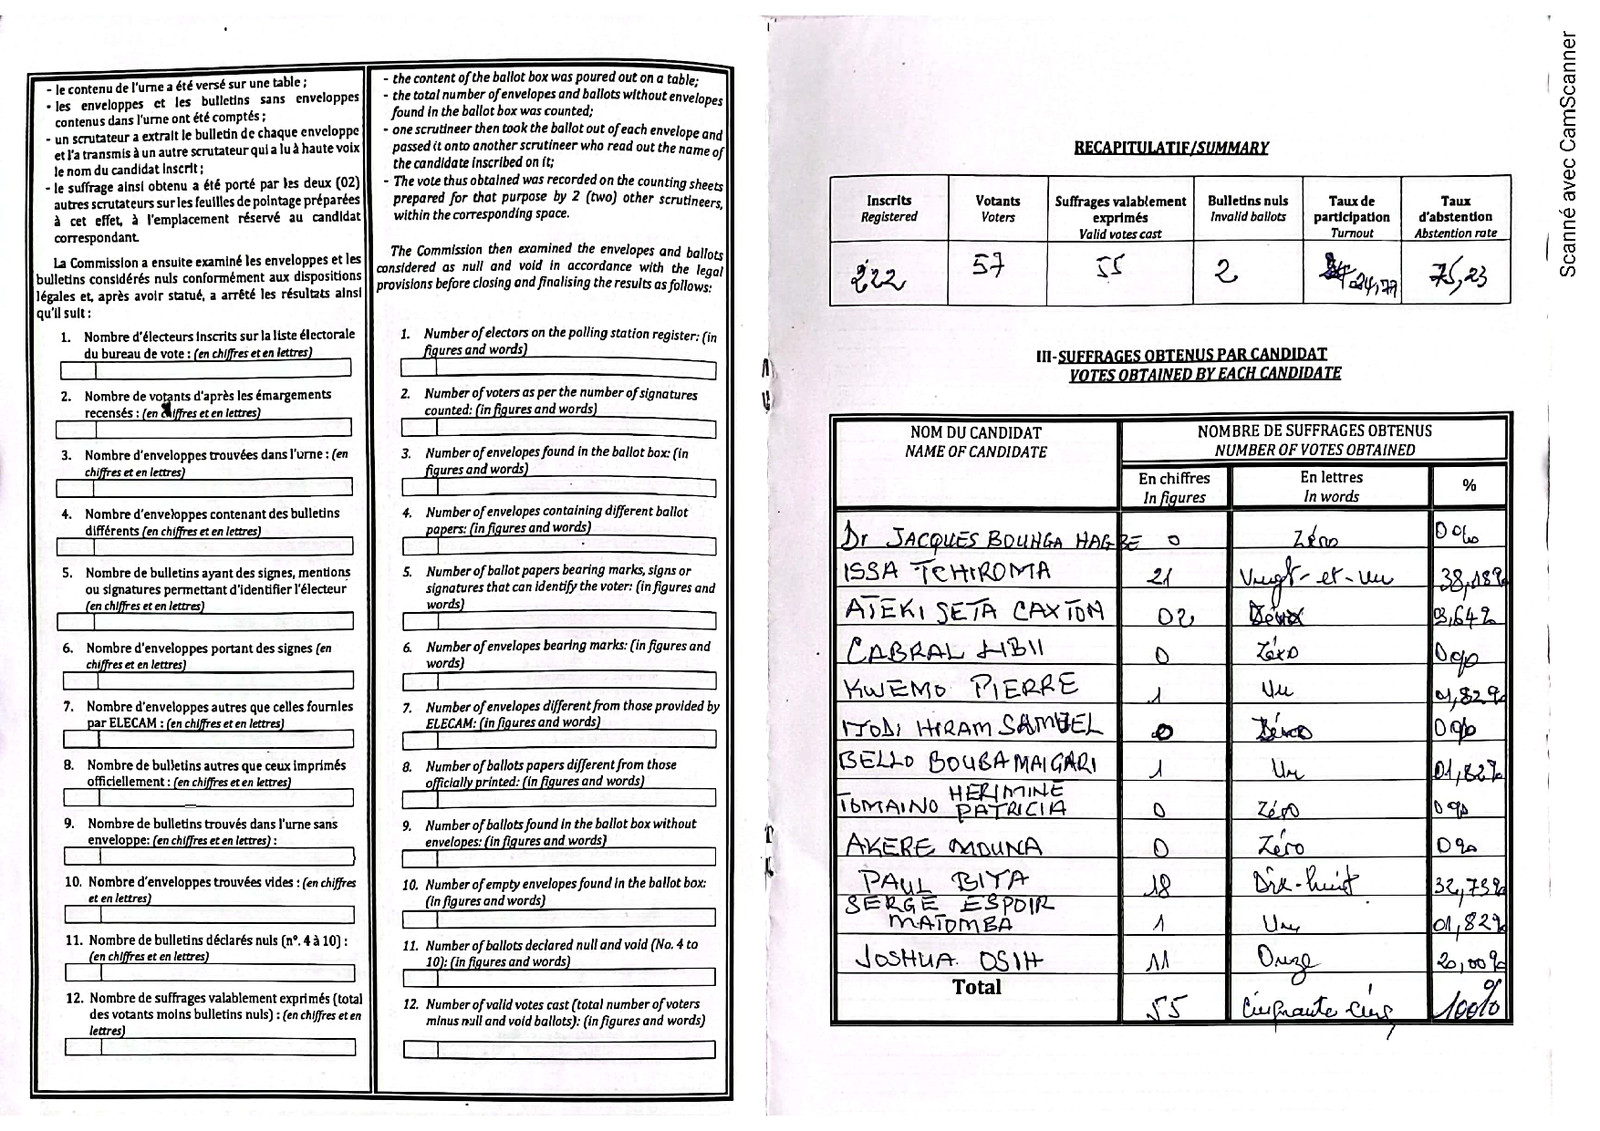 - le contenu de l'urne a été versé sur une table ;
- les enveloppes et les bulletins sans enveloppes
contenus dans l'urne ont été comptés ;
- un scrutateur a extrait le bulletin de chaque enveloppe
et l'a transmis à un autre scrutateur qui a lu à haute voix
le nom du candidat inscrit ;
- le suffrage ainsi obtenu a été porté par les deux (02)
autres scrutateurs sur les feuilles de pointage préparées
à cet effet, à l'emplacement réservé au candidat
correspondant.
La Commission a ensuite examiné les enveloppes et les
bulletins considérés nuls conformément aux dispositions
légales et, après avoir statué, a arrêté les résultats ainsi
qu'il suit :
1. Nombre d'électeurs inscrits sur la liste électorale
du bureau de vote : (en chiffres et en lettres)
2. Nombre de votants d'après les émargements
recensés : (en chiffres et en lettres)
3. Nombre d'enveloppes trouvées dans l'urne : (en
chiffres et en lettres)
4. Nombre d'enveloppes contenant des bulletins
différents (en chiffres et en lettres)
5. Nombre de bulletins ayant des signes, mentions
ou signatures permettant d'identifier l'électeur
(en chiffres et en lettres)
6. Nombre d'enveloppes portant des signes (en
chiffres et en lettres)
7. Nombre d'enveloppes autres que celles fournies
par ELECAM : (en chiffres et en lettres)
8. Nombre de bulletins autres que ceux imprimés
officiellement : (en chiffres et en lettres)
9. Nombre de bulletins trouvés dans l'urne sans
enveloppe: (en chiffres et en lettres) :
10. Nombre d'enveloppes trouvées vides : (en chiffres
et en lettres)
11. Nombre de bulletins déclarés nuls (n°. 4 à 10) :
(en chiffres et en lettres)
12. Nombre de suffrages valablement exprimés (total
des votants moins bulletins nuls) : (en chiffres et en
lettres)
- the content of the ballot box was poured out on a table;
- the total number of envelopes and ballots without envelopes
found in the ballot box was counted;
- one scrutineer then took the ballot out of each envelope and
passed it onto another scrutineer who read out the name of
the candidate inscribed on it;
- The vote thus obtained was recorded on the counting sheets
prepared for that purpose by 2 (two) other scrutineers,
within the corresponding space.
The Commission then examined the envelopes and ballots
considered as null and void in accordance with the legal
provisions before closing and finalising the results as follows:
1. Number of electors on the polling station register: (in
figures and words)
2. Number of voters as per the number of signatures
counted: (in figures and words)
3. Number of envelopes found in the ballot box: (in
figures and words)
4. Number of envelopes containing different ballot
papers: (in figures and words)
5. Number of ballot papers bearing marks, signs or
signatures that can identify the voter: (in figures and
words)
6. Number of envelopes bearing marks: (in figures and
words)
7. Number of envelopes different from those provided by
ELECAM: (in figures and words)
8. Number of ballots papers different from those
officially printed: (in figures and words)
9. Number of ballots found in the ballot box without
envelopes: (in figures and words)
10. Number of empty envelopes found in the ballot box:
(in figures and words)
11. Number of ballots declared null and void (No. 4 to
10): (in figures and words)
12. Number of valid votes cast (total number of voters
minus null and void ballots): (in figures and words)
RECAPITULATIF/SUMMARY
Inscrits Registered
Votants Voters
Suffrages valablement exprimés Valid votes cast
Bulletins nuls Invalid ballots
Taux de participation Turnout
Taux d'abstention Abstention rate
222 57 55 2 24,77 75,23
III-SUFFRAGES OBTENUS PAR CANDIDAT
VOTES OBTAINED BY EACH CANDIDATE
NOM DU CANDIDAT NOMBRE DE SUFFRAGES OBTENUS
NAME OF CANDIDATE NUMBER OF VOTES OBTAINED
En chiffres En lettres %
In figures In words
Dr JACQUES BOUNGA HAGBE 0 Zéro 0%
ISSA TCHIROMA 21 Vingt-et-un 38,18%
ATEKI SETA CAXTON 02 03,64%
CABRAL LIBII 0 Zéro 0%
KWEMO PIERRE 1 Un 01,82%
ITJODI HIRAM SAMUEL 0 0%
BELLO BOUBA MAIGARI 1 Un 01,82%
TOMAINO HERIMINE PATRICIA 0 Zéro 0%
AKERE MOUNA 0 Zéro 0%
PAUL BIYA 18 Dix-huit 32,73%
SERGE ESPOIR MATOMBA 1 Un 01,82%
JOSHUA OSIH 11 Onze 20,00%
Total 55 Cinquante-cinq 100%
Scanné avec CamScanner